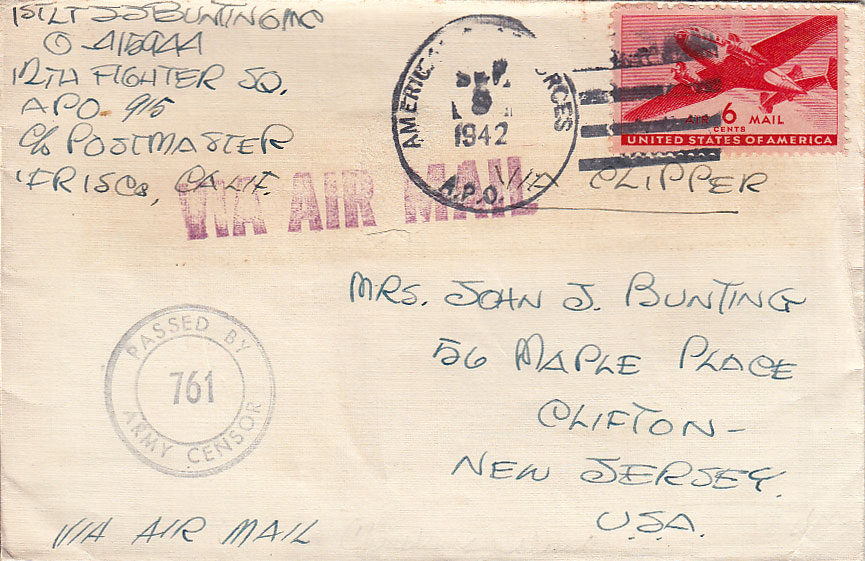 1ST LT JJ BUNTING MC
O-415944
12TH FIGHTER SQ.
A.P.O. 915
C/o POSTMASTER
'FRISCO, CALIF.
VIA AIR MAIL
AMERIC
RCES
1942
A.P.O.
AIR 6 MAIL
CENTS
UNITED STATES OF AMERICA
VIA CLIPPER
MRS. JOHN J. BUNTING
56 MAPLE PLACE
CLIFTON-
NEW JERSEY.
U.S.A.
PASSED BY
761
ARMY CENSOR
VIA AIR MAIL